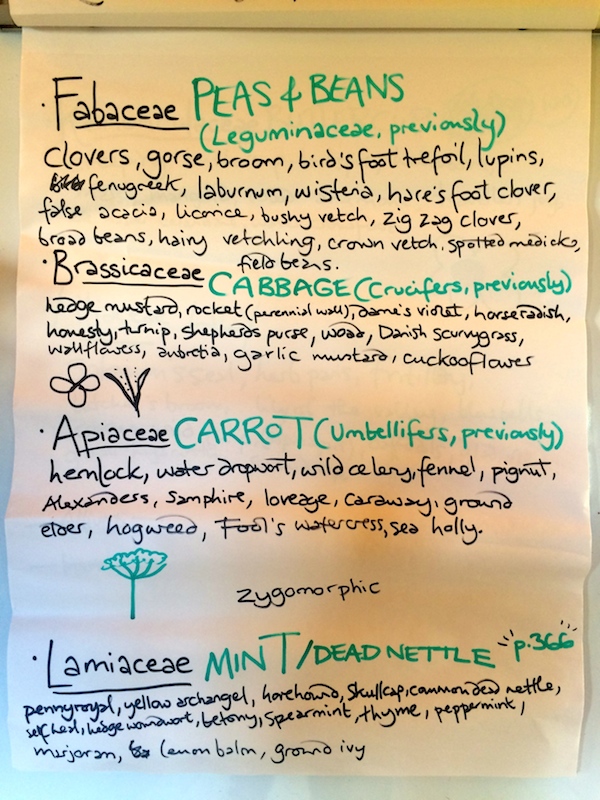 · Fabaceae PEAS & BEANS
(Leguminaceae, previously)
clovers, gorse, broom, bird's foot trefoil, lupins,
fenugreek, laburnum, wisteria, hare's foot clover,
false acacia, licorice, bushy vetch, zig zag clover,
broad beans, hairy vetchling, crown vetch, spotted medicks,
field beans.
· Brassicaceae CABBAGE (Crucifers, previously)
hedge mustard, rocket (perennial wall), dame's violet, horseradish,
honesty, turnip, shepherds purse, woad, Danish scurvygrass,
wallflowers, aubretia, garlic mustard, cuckooflower
· Apiaceae CARROT (Umbellifers, previously)
hemlock, water dropwort, wild celery, fennel, pignut,
Alexanders, Samphire, lovage, caraway, ground
elder, hogweed, Fool's watercress, sea holly.
zygomorphic
· Lamiaceae MINT/DEAD NETTLE p.366
pennyroyal, yellow archangel, horehound, Skullcap, common dead nettle,
self heal, hedge woundwort, betony, Spearmint, thyme, peppermint,
marjoram, lemon balm, ground ivy